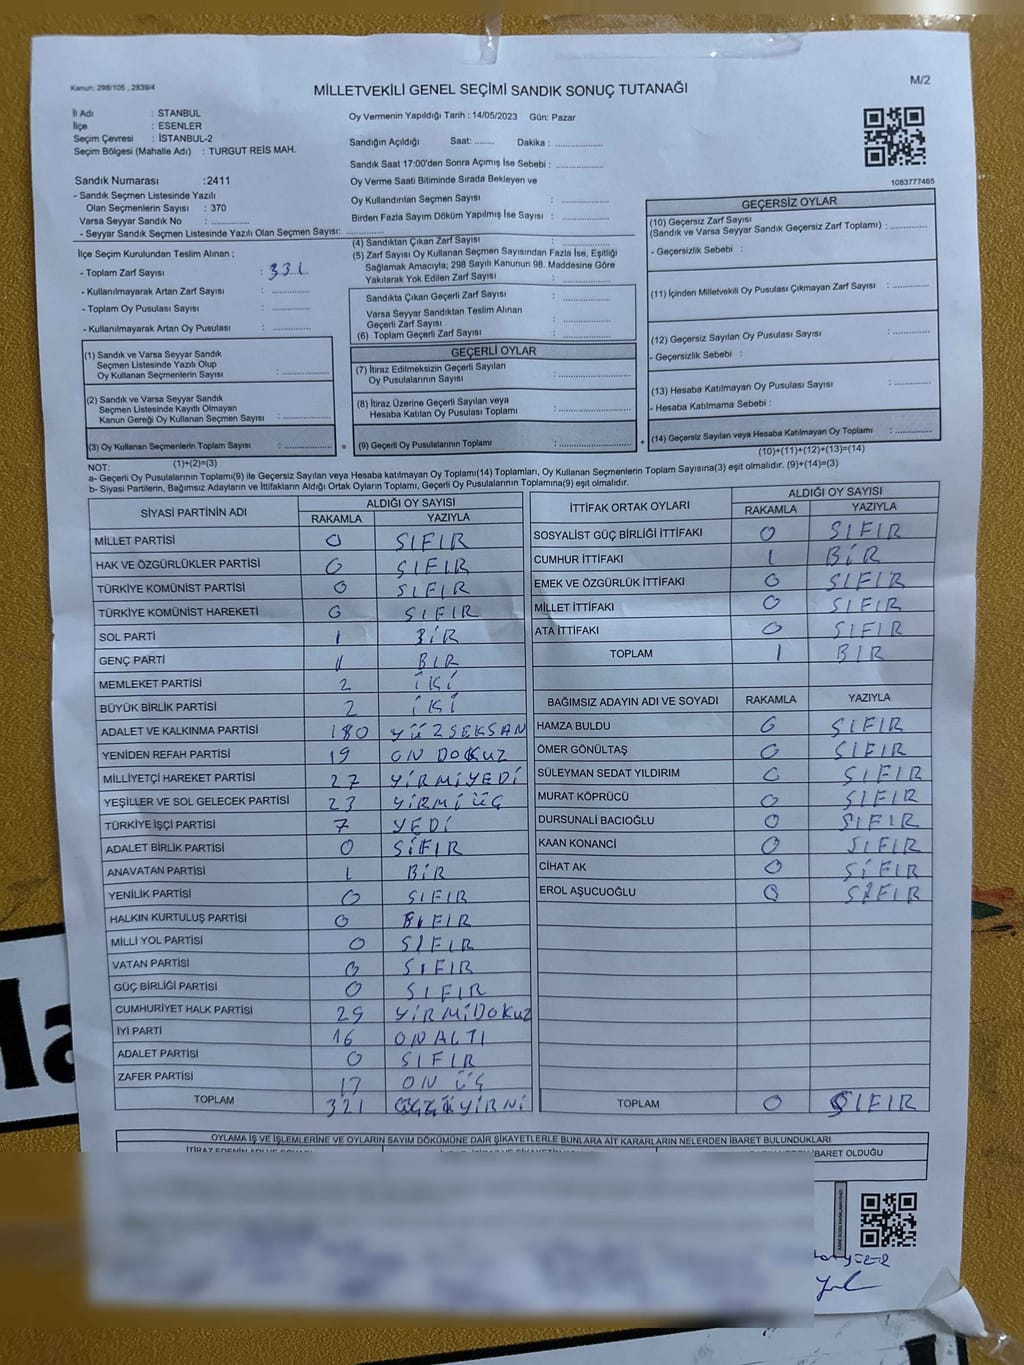 Kanun: 298/105 , 2839/4
MİLLETVEKİLİ GENEL SEÇİMİ SANDIK SONUÇ TUTANAĞI
M/2
İl Adı : STANBUL
İlçe : ESENLER
Seçim Çevresi : İSTANBUL-2
Seçim Bölgesi (Mahalle Adı) : TURGUT REİS MAH.
Sandık Numarası :2411
- Sandık Seçmen Listesinde Yazılı
Olan Seçmenlerin Sayısı : 370
Varsa Seyyar Sandık No : ..............
- Seyyar Sandık Seçmen Listesinde Yazılı Olan Seçmen Sayısı: ..............
Oy Vermenin Yapıldığı Tarih : 14/05/2023 Gün: Pazar
Sandığın Açıldığı Saat: ....... Dakika : ..............
Sandık Saat 17:00'den Sonra Açımış İse Sebebi : ..............
Oy Verme Saati Bitiminde Sırada Bekleyen ve
Oy Kullandırılan Seçmen Sayısı : ..............
Birden Fazla Sayım Döküm Yapılmış İse Sayısı : ..............
1083777465
İlçe Seçim Kurulundan Teslim Alınan ;
- Toplam Zarf Sayısı : 331
- Kullanılmayarak Artan Zarf Sayısı : ..............
- Toplam Oy Pusulası Sayısı : ..............
- Kullanılmayarak Artan Oy Pusulası : ..............
(1) Sandık ve Varsa Seyyar Sandık
Seçmen Listesinde Yazılı Olup
Oy Kullanan Seçmenlerin Sayısı : ..............
(2) Sandık ve Varsa Seyyar Sandık
Seçmen Listesinde Kayıtlı Olmayan
Kanun Gereği Oy Kullanan Seçmen Sayısı : ..............
(3) Oy Kullanan Seçmenlerin Toplam Sayısı : ..............
(1)+(2)=(3)
(4) Sandıktan Çıkan Zarf Sayısı : ..............
(5) Zarf Sayısı Oy Kullanan Seçmen Sayısından Fazla İse, Eşitliği
Sağlamak Amacıyla; 298 Sayılı Kanunun 98. Maddesine Göre
Yakılarak Yok Edilen Zarf Sayısı : ..............
Sandıkta Çıkan Geçerli Zarf Sayısı : ..............
Varsa Seyyar Sandıktan Teslim Alınan
Geçerli Zarf Sayısı : ..............
(6) Toplam Geçerli Zarf Sayısı : ..............
GEÇERLİ OYLAR
(7) İtiraz Edilmeksizin Geçerli Sayılan
Oy Pusulalarının Sayısı : ..............
(8) İtiraz Üzerine Geçerli Sayılan veya
Hesaba Katılan Oy Pusulası Toplamı : ..............
= (9) Geçerli Oy Pusulalarının Toplamı : ..............
GEÇERSİZ OYLAR
(10) Geçersiz Zarf Sayısı
(Sandık ve Varsa Seyyar Sandık Geçersiz Zarf Toplamı) : ..............
- Geçersizlik Sebebi :
(11) İçinden Milletvekili Oy Pusulası Çıkmayan Zarf Sayısı : ..............
(12) Geçersiz Sayılan Oy Pusulası Sayısı : ..............
- Geçersizlik Sebebi :
(13) Hesaba Katılmayan Oy Pusulası Sayısı : ..............
- Hesaba Katılmama Sebebi :
+ (14) Geçersiz Sayılan veya Hesaba Katılmayan Oy Toplamı : ..............
(10)+(11)+(12)+(13)=(14)
NOT:
a- Geçerli Oy Pusulalarının Toplamı(9) ile Geçersiz Sayılan veya Hesaba katılmayan Oy Toplamı(14) Toplamları, Oy Kullanan Seçmenlerin Toplam Sayısına(3) eşit olmalıdır. (9)+(14)=(3)
b- Siyasi Partilerin, Bağımsız Adayların ve İttifakların Aldığı Ortak Oyların Toplamı, Geçerli Oy Pusulalarının Toplamına(9) eşit olmalıdır.
SİYASİ PARTİNİN ADI ALDIĞI OY SAYISI
RAKAMLA YAZIYLA
MİLLET PARTİSİ 0 SIFIR
HAK VE ÖZGÜRLÜKLER PARTİSİ 0 SIFIR
TÜRKİYE KOMÜNİST PARTİSİ 0 SIFIR
TÜRKİYE KOMÜNİST HAREKETİ 0 SIFIR
SOL PARTİ 1 BİR
GENÇ PARTİ 1 BIR
MEMLEKET PARTİSİ 2 İKİ
BÜYÜK BİRLİK PARTİSİ 2 İKİ
ADALET VE KALKINMA PARTİSİ 180 YÜZSEKSAN
YENİDEN REFAH PARTİSİ 19 ON DOKUZ
MİLLİYETÇİ HAREKET PARTİSİ 27 YİRMİYEDİ
YEŞİLLER VE SOL GELECEK PARTİSİ 23 YİRMİ ÜÇ
TÜRKİYE İŞÇİ PARTİSİ 7 YEDİ
ADALET BİRLİK PARTİSİ 0 SIFIR
ANAVATAN PARTİSİ 1 BİR
YENİLİK PARTİSİ 0 SIFIR
HALKIN KURTULUŞ PARTİSİ 0 SIFIR
MİLLİ YOL PARTİSİ 0 SIFIR
VATAN PARTİSİ 0 SIFIR
GÜÇ BİRLİĞİ PARTİSİ 0 SIFIR
CUMHURİYET HALK PARTİSİ 29 YİRMİDOKUZ
İYİ PARTİ 16 ONALTI
ADALET PARTİSİ 0 SIFIR
ZAFER PARTİSİ 13 ON ÜÇ
TOPLAM 321
İTTİFAK ORTAK OYLARI ALDIĞI OY SAYISI
RAKAMLA YAZIYLA
SOSYALİST GÜÇ BİRLİĞİ İTTİFAKI 0 SIFIR
CUMHUR İTTİFAKI 1 BİR
EMEK VE ÖZGÜRLÜK İTTİFAKI 0 SIFIR
MİLLET İTTİFAKI 0 SIFIR
ATA İTTİFAKI 0 SIFIR
TOPLAM 1 BIR
BAĞIMSIZ ADAYIN ADI VE SOYADI RAKAMLA YAZIYLA
HAMZA BULDU 0 SIFIR
ÖMER GÖNÜLTAŞ 0 SIFIR
SÜLEYMAN SEDAT YILDIRIM 0 SIFIR
MURAT KÖPRÜCÜ 0 SIFIR
DURSUNALİ BACIOĞLU 0 SIFIR
KAAN KONANCİ 0 SIFIR
CİHAT AK 0 SİFIR
EROL AŞUCUOĞLU 0 SIFIR
TOPLAM 0 SIFIR
OYLAMA İŞ VE İŞLEMLERİNE VE OYLARIN SAYIM DÖKÜMÜNE DAİR ŞİKAYETLERLE BUNLARA AİT KARARLARIN NELERDEN İBARET BULUNDUKLARI
İBARET OLDUĞU